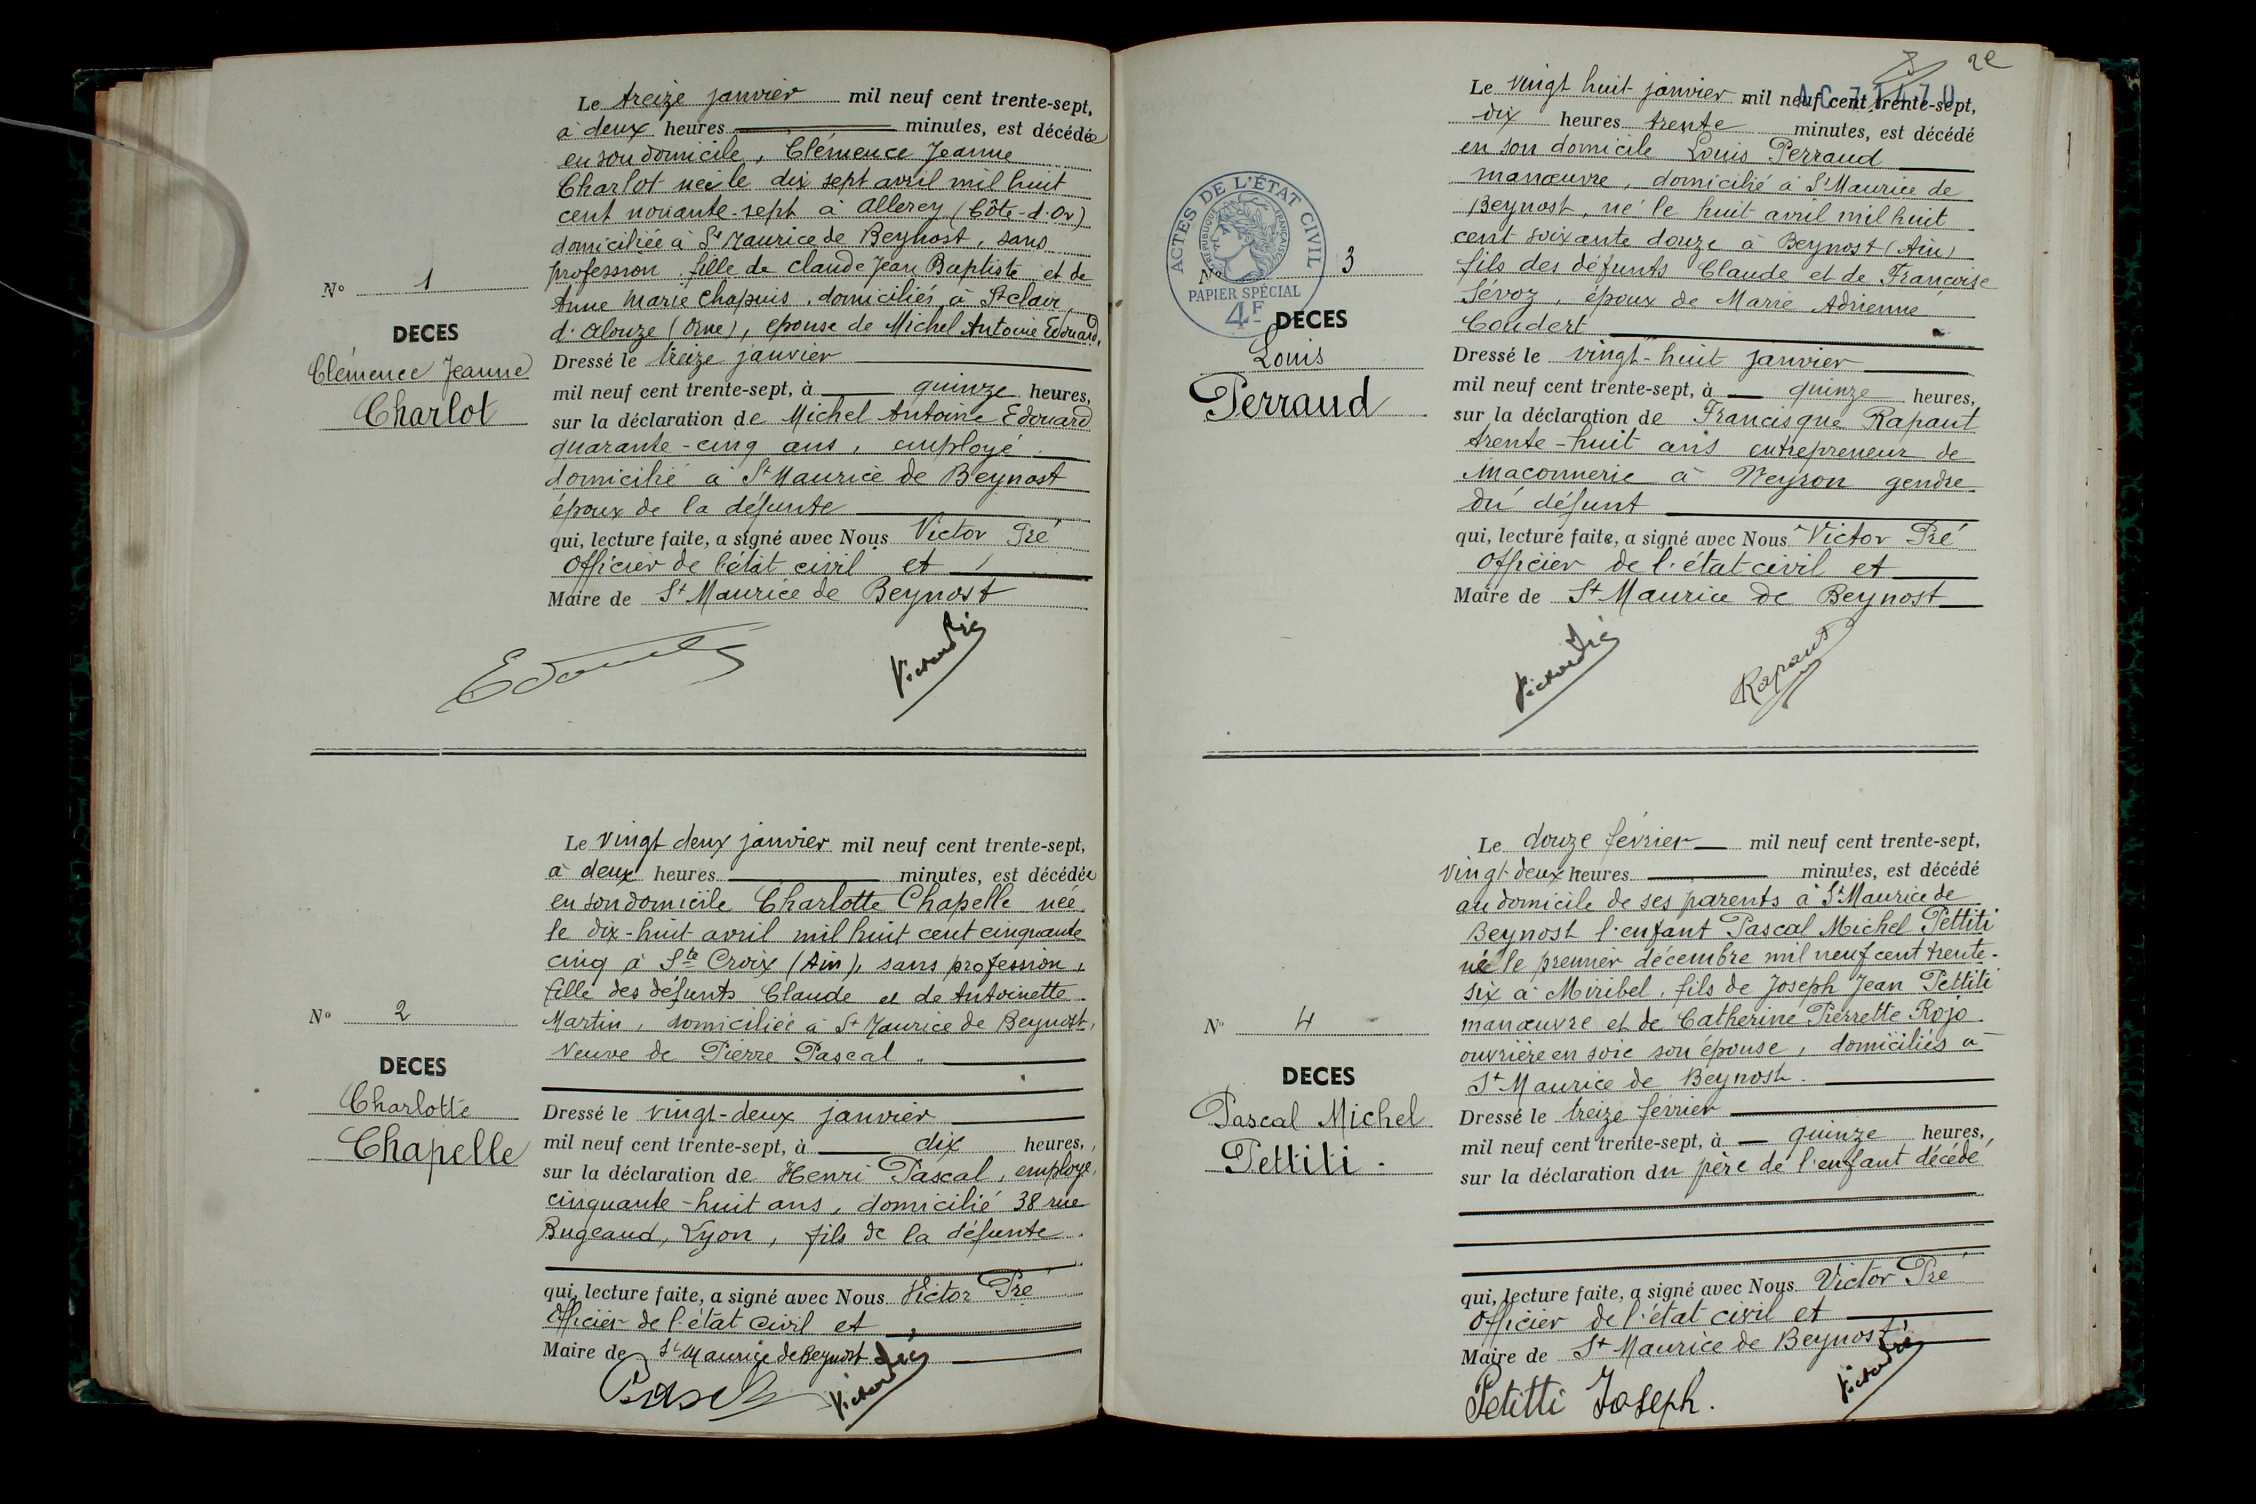 Le treize janvier mil neuf cent trente-sept,
à deux heures minutes, est décédée
en son domicile, Clémence Jeanne
Charlot née le dix sept avril mil huit
cent nonante-sept à Allerey (Côte-d'Or)
domiciliée à St Maurice de Beynost, sans
profession, fille de Claude Jean Baptiste et de
Anne Marie Chapuis, domiciliés à St Clair
d'Alouze (Orne), épouse de Michel Antoine Edouard.
N° 1
DECES
Clémence Jeanne
Charlot
Dressé le treize janvier
mil neuf cent trente-sept, à quinze heures,
sur la déclaration de Michel Antoine Edouard
quarante-cinq ans, employé
domicilié à St Maurice de Beynost
époux de la défunte
qui, lecture faite, a signé avec Nous Victor Pré
Officier de l'état civil et
Maire de St Maurice de Beynost
Victor Pré
Le vingt deux janvier mil neuf cent trente-sept,
à deux heures minutes, est décédée
en son domicile Charlotte Chapelle née
le dix-huit avril mil huit cent cinquante
cinq à Ste Croix (Ain), sans profession,
fille des défunts Claude et de Antoinette
Martin, domiciliée à St Maurice de Beynost,
Veuve de Pierre Pascal
N° 2
DECES
Charlotte
Chapelle
Dressé le vingt-deux janvier
mil neuf cent trente-sept, à dix heures,
sur la déclaration de Henri Pascal, employé,
cinquante-huit ans, domicilié 38 rue
Bugeaud, Lyon, fils de la défunte.
qui, lecture faite, a signé avec Nous Victor Pré
Officier de l'état civil et
Maire de St Maurice de Beynost
Pascal
Victor Pré
2e
Le vingt huit janvier mil neuf cent trente-sept,
dix heures trente minutes, est décédé
en son domicile Louis Perraud
manœuvre, domicilié à St Maurice de
Beynost, né le huit avril mil huit
cent soixante douze à Beynost (Ain)
fils des défunts Claude et de Françoise
Sévoz, époux de Marie Adrienne
Coudert
ACTES DE L'ÉTAT CIVIL
RÉPUBLIQUE FRANÇAISE
PAPIER SPÉCIAL
4F
N° 3
DECES
Louis
Perraud
Dressé le vingt-huit janvier
mil neuf cent trente-sept, à quinze heures,
sur la déclaration de Francisque Rapaut
trente-huit ans entrepreneur de
maçonnerie à Neyron gendre
du défunt
qui, lecture faite, a signé avec Nous Victor Pré
Officier de l'état civil et
Maire de St Maurice de Beynost
Victor Pré
Rapaut
Le douze février mil neuf cent trente-sept,
vingt-deux heures minutes, est décédé
au domicile de ses parents à St Maurice de
Beynost l'enfant Pascal Michel Pettiti
né le premier décembre mil neuf cent trente-
six à Miribel, fils de Joseph Jean Pettiti
manœuvre et de Catherine Pierrette Rojo
ouvrière en soie son épouse, domiciliés à
St Maurice de Beynost.
N° 4
DECES
Pascal Michel
Pettiti.
Dressé le treize février
mil neuf cent trente-sept, à quinze heures,
sur la déclaration du père de l'enfant décédé
qui, lecture faite, a signé avec Nous Victor Pré
Officier de l'état civil et
Maire de St Maurice de Beynost
Petitti Joseph.
Victor Pré